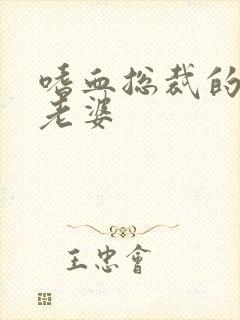 嗜血总裁的
老婆
王忠會